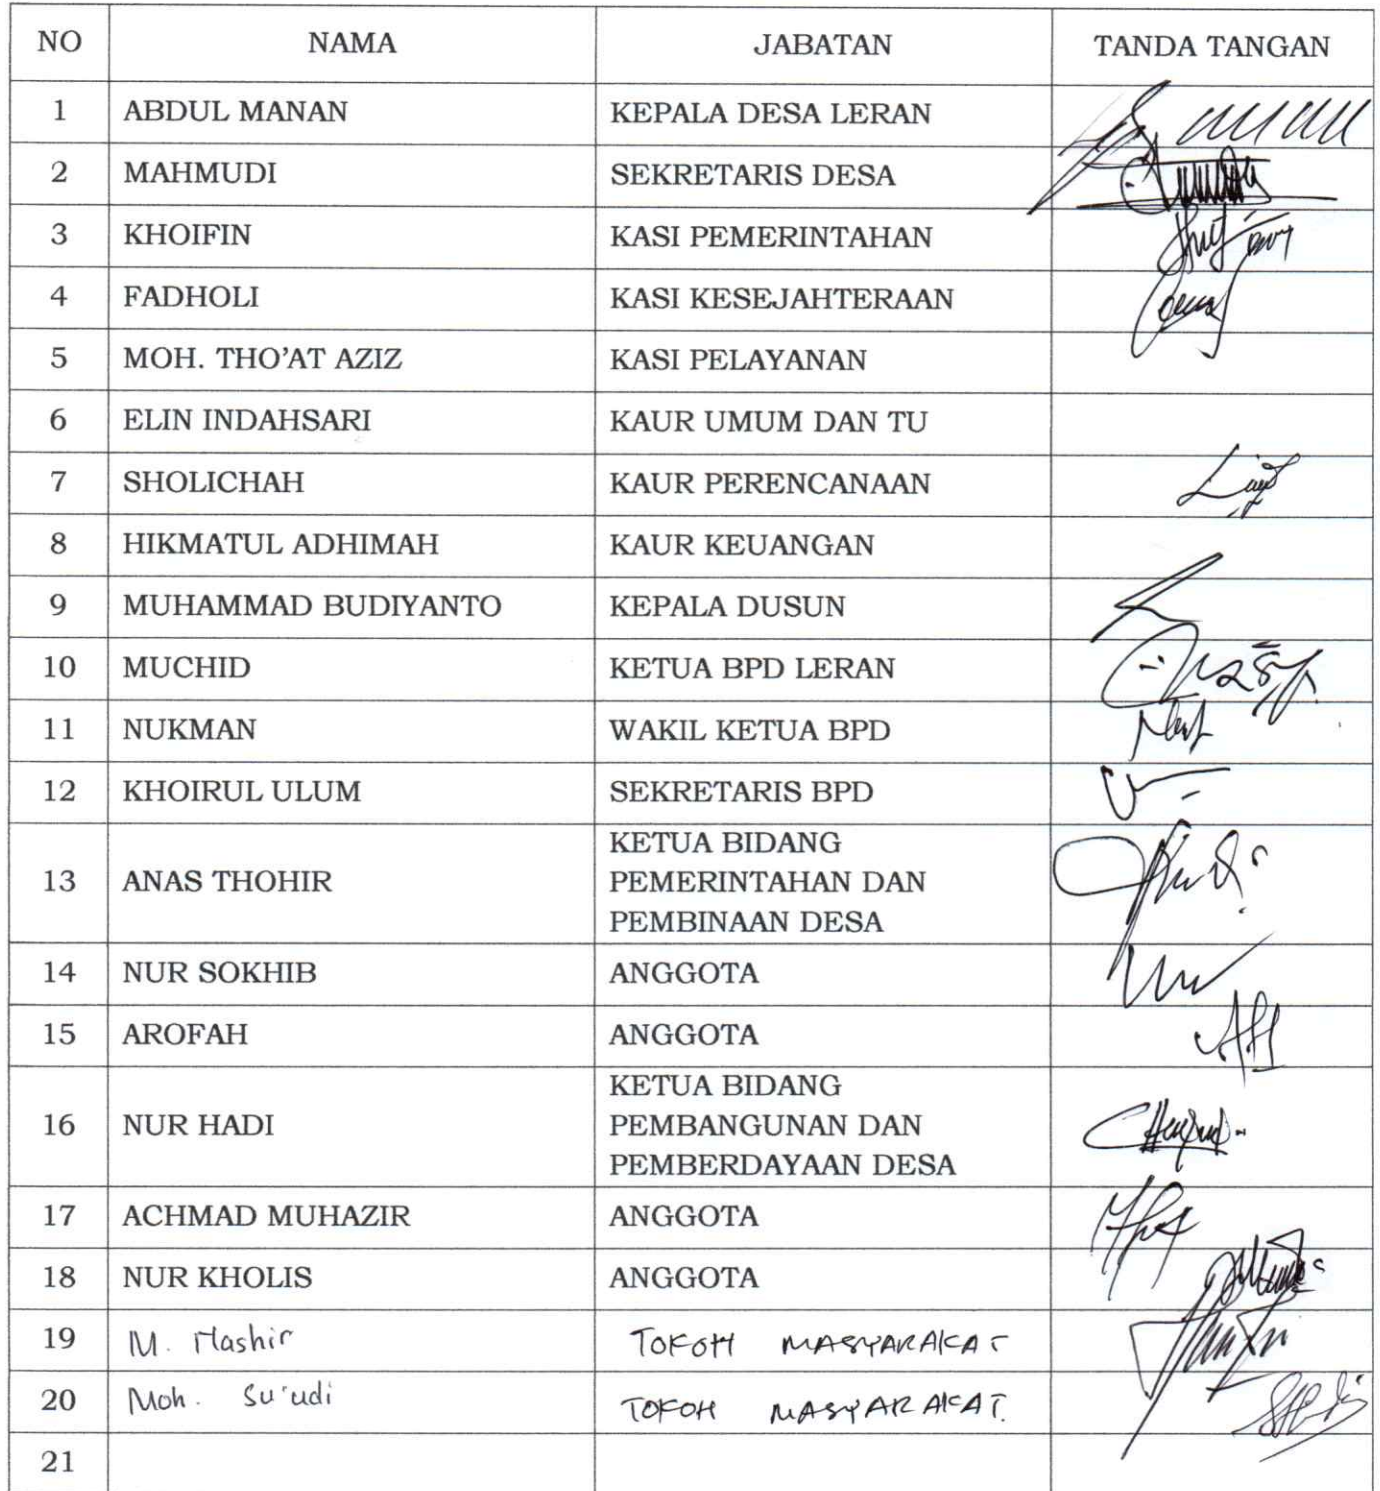 NO NAMA JABATAN TANDA TANGAN
1 ABDUL MANAN KEPALA DESA LERAN
2 MAHMUDI SEKRETARIS DESA
3 KHOIFIN KASI PEMERINTAHAN
4 FADHOLI KASI KESEJAHTERAAN
5 MOH. THO'AT AZIZ KASI PELAYANAN
6 ELIN INDAHSARI KAUR UMUM DAN TU
7 SHOLICHAH KAUR PERENCANAAN
8 HIKMATUL ADHIMAH KAUR KEUANGAN
9 MUHAMMAD BUDIYANTO KEPALA DUSUN
10 MUCHID KETUA BPD LERAN
11 NUKMAN WAKIL KETUA BPD
12 KHOIRUL ULUM SEKRETARIS BPD
13 ANAS THOHIR KETUA BIDANG
PEMERINTAHAN DAN
PEMBINAAN DESA
14 NUR SOKHIB ANGGOTA
15 AROFAH ANGGOTA
16 NUR HADI KETUA BIDANG
PEMBANGUNAN DAN
PEMBERDAYAAN DESA
17 ACHMAD MUHAZIR ANGGOTA
18 NUR KHOLIS ANGGOTA
19 M. Mashir TOKOH MASYARAKAT
20 Moh. Su'udi TOKOH MASYARAKAT.
21